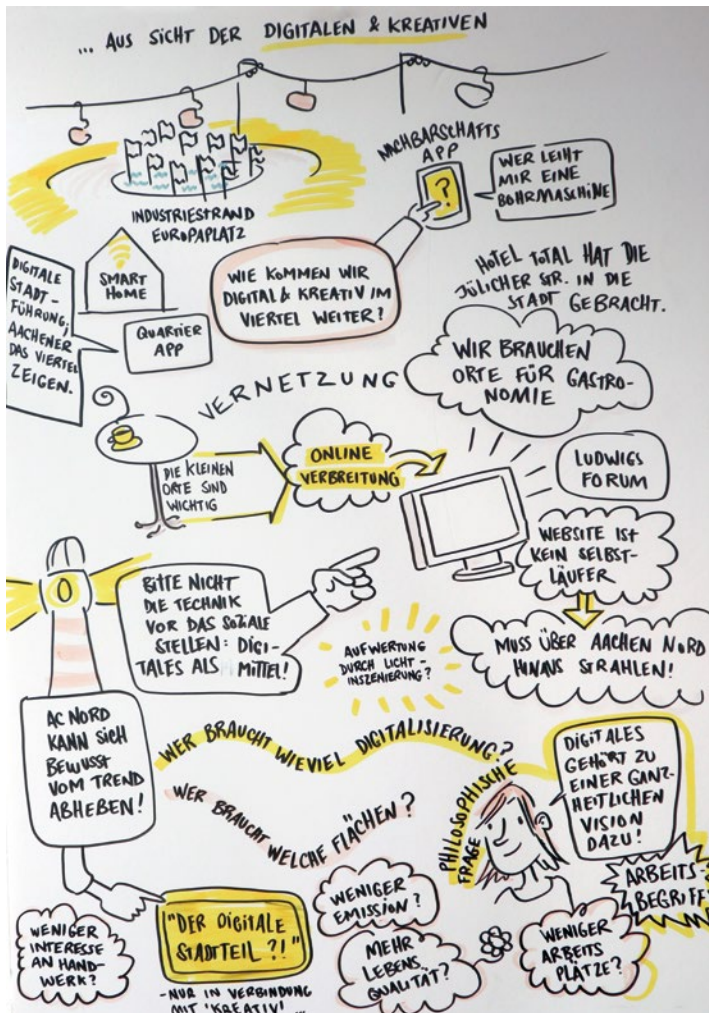 ... AUS SICHT DER DIGITALEN & KREATIVEN
NACHBARSCHAFTS
APP
?
WER LEIHT
MIR EINE
BOHRMASCHINE
INDUSTRIESTRAND
EUROPAPLATZ
DIGITALE
STADT-
FÜHRUNG;
AACHENER
DAS VIERTEL
ZEIGEN.
SMART
HOME
QUARTIER
APP
WIE KOMMEN WIR
DIGITAL & KREATIV IM
VIERTEL WEITER?
HOTEL TOTAL HAT DIE
JÜLICHER STR. IN DIE
STADT GEBRACHT.
WIR BRAUCHEN
ORTE FÜR GASTRO-
NOMIE
VERNETZUNG
DIE KLEINEN
ORTE SIND
WICHTIG
ONLINE
VERBREITUNG
LUDWIGS
FORUM
WEBSITE IST
KEIN SELBST-
LÄUFER
MUSS ÜBER AACHEN NORD
HINAUS STRAHLEN!
BITTE NICHT
DIE TECHNIK
VOR DAS SOZIALE
STELLEN: DIGI-
TALES ALS MITTEL!
AUFWERTUNG
DURCH LICHT-
INSZENIERUNG?
AC NORD
KANN SICH
BEWUSST
VOM TREND
ABHEBEN!
WER BRAUCHT WIEVIEL DIGITALISIERUNG?
WER BRAUCHT WELCHE FLÄCHEN?
PHILOSOPHISCHE
FRAGE
DIGITALES
GEHÖRT ZU
EINER GANZ-
HEITLICHEN
VISION
DAZU!
ARBEITS-
BEGRIFF
WENIGER
INTERESSE
AN HAND-
WERK?
"DER DIGITALE
STADTTEIL ?!"
- NUR IN VERBINDUNG
MIT 'KREATIV' ...
WENIGER
EMISSION?
MEHR
LEBENS
QUALITÄT?
WENIGER
ARBEITS
PLÄTZE?